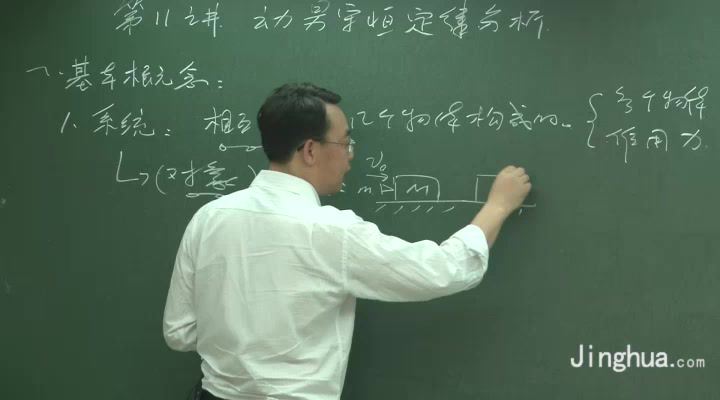 第11讲 动量守恒定律分析
一、基本概念：
1、系统： 相互 几个物体构成的。 { 多个物体
作用力
↳(对象) : m v₀ M
Jinghua.com